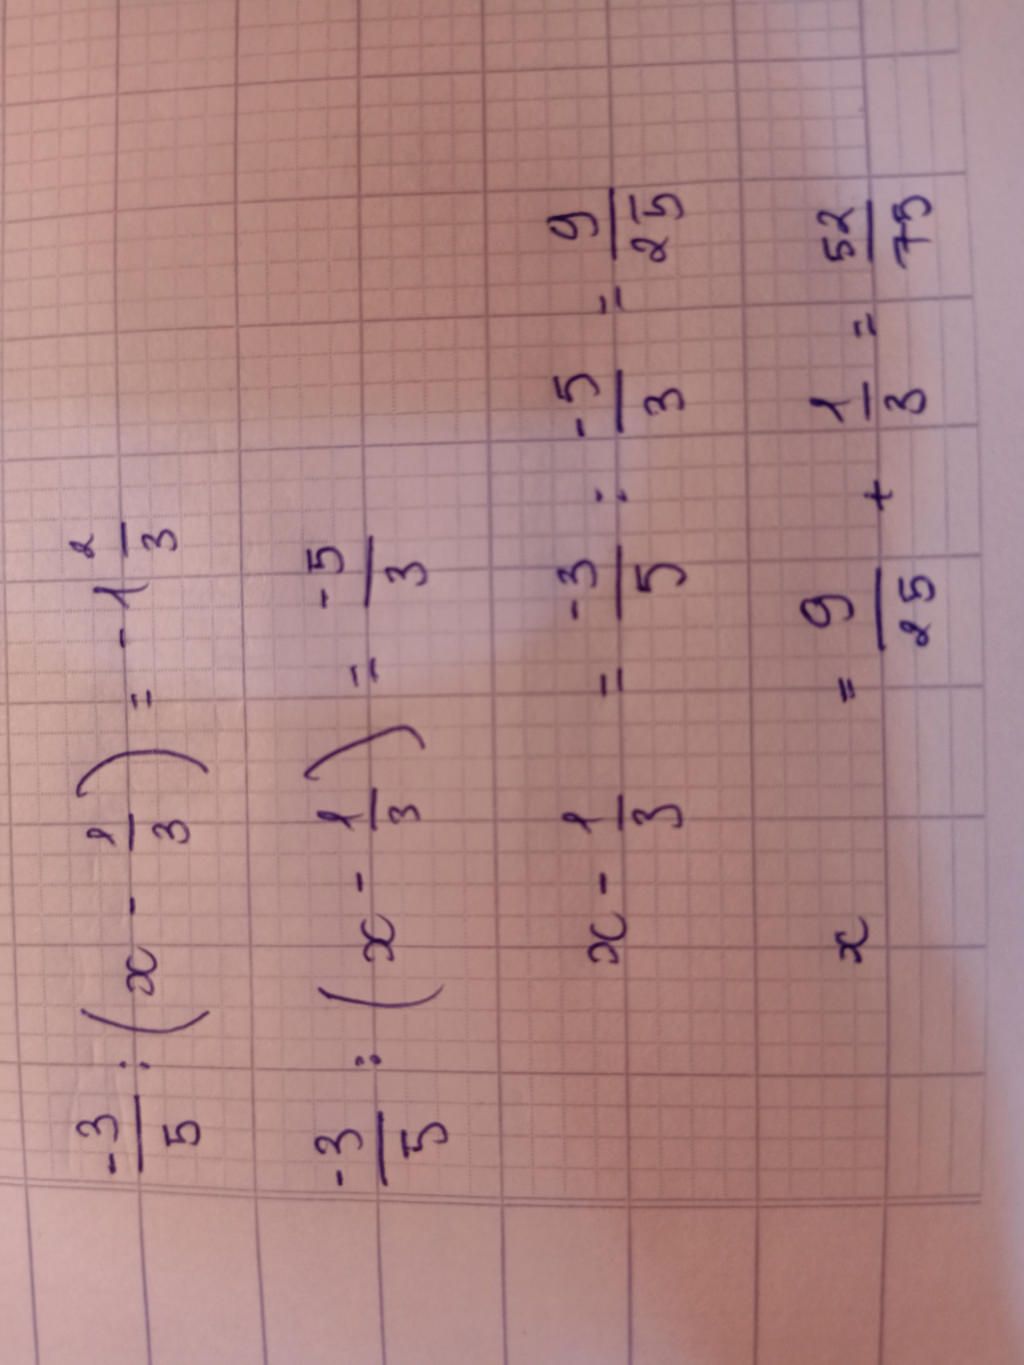 -3/5 : (x - 1/3) = -1 2/3
-3/5 : (x - 1/3) = -5/3
x - 1/3 = -3/5 : -5/3 = 9/25
x = 9/25 + 1/3 = 52/75